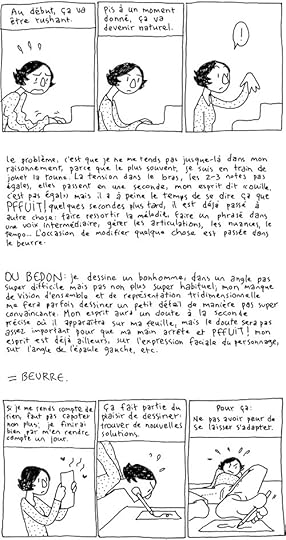 Au début, ça va
être tushant.
Pis à un moment
donné, ça va
devenir naturel.
!
Le problème, c'est que je ne me rends pas jusque-là dans mon
raisonnement, parce que le plus souvent, je suis en train de
jouer la toune. La tension dans le bras, les 2-3 notes pas
égales, elles passent en une seconde, mon esprit dit «ouille,
c'est pas égal», mais il a à peine le temps de se dire ça que
PFFUIT! quelques secondes plus tard, il est déjà passé à
autre chose: faire ressortir la mélodie, faire un phrasé dans
une voix intermédiaire, gérer les articulations, les nuances, le
tempo... L'occasion de modifier quelque chose est passée dans
le beurre.
OU BEDON: je dessine un bonhomme, dans un angle pas
super difficile mais pas non plus super habituel; mon manque
de vision d'ensemble et de représentation tridimensionnelle
me fera parfois dessiner un petit détail de manière pas super
convaincante. Mon esprit aura un doute à la seconde
précise où il apparaîtra sur ma feuille, mais le doute sera pas
assez important pour que ma main arrête et PFFUIT! mon
esprit est déjà ailleurs, sur l'expression faciale du personnage,
sur l'angle de l'épaule gauche, etc.
= BEURRE.
Si je me rends compte de
rien, faut pas capoter
non plus: je finirai
bien par m'en rendre
compte un jour.
Ça fait partie du
plaisir de dessiner:
trouver de nouvelles
solutions.
Pour ça:
Ne pas avoir peur de
se laisser s'adapter.